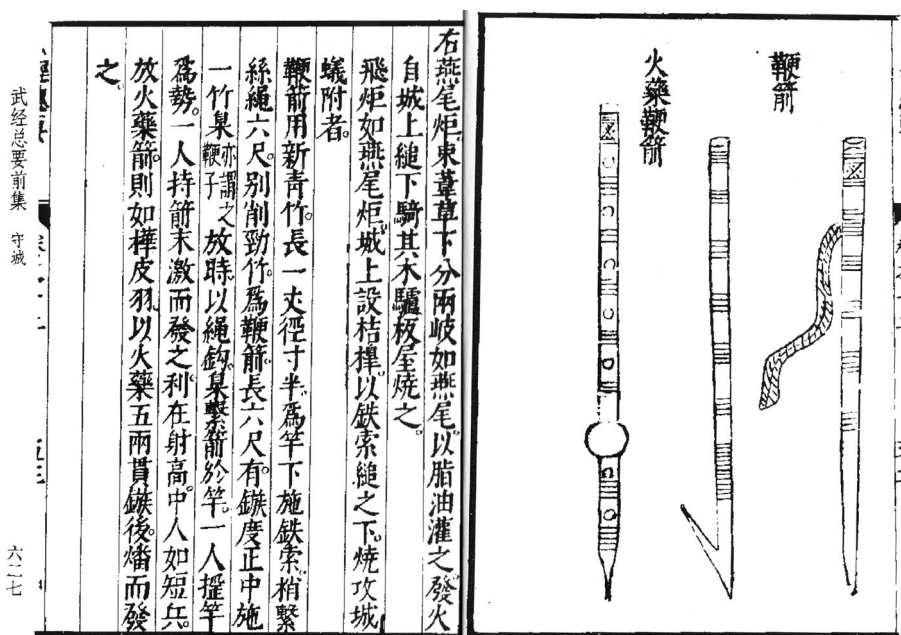 鞭箭
火藥鞭箭
右燕尾炬。束葦草下分兩岐如燕尾。以脂油灌之發火
自城上縋下騎其木驢板屋燒之。
飛炬如燕尾炬。城上設桔槹。以鉄索縋之下。燒攻城
蟻附者。
鞭箭用新青竹。長一丈徑寸半。爲竿下施鉄索。梢繫
絲繩六尺。别削勁竹。爲鞭箭。長六尺有鏃度正中施
一竹臬亦謂之鞭子放時。以繩鈎臬繫箭於竿。一人揺竿
爲勢。一人持箭末激而發之利在射高。中人如短兵。
放火藥箭。則如樺皮羽。以火藥五兩貫鏃後。燔而發
之。
武经总要前集 守城
六二七